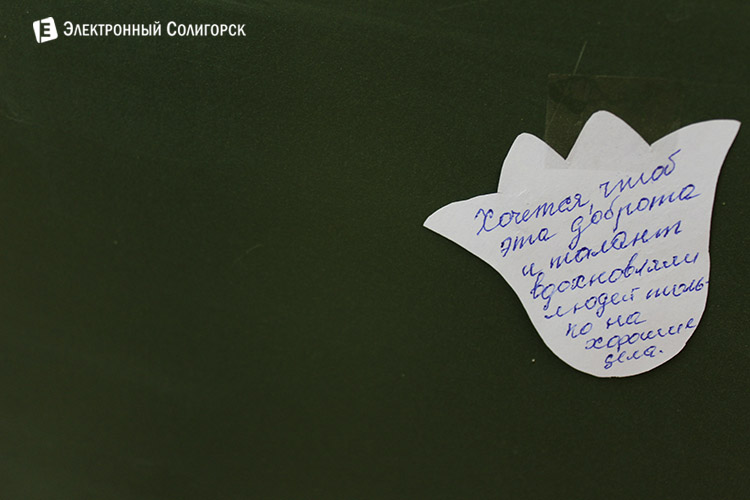 E Электронный Солигорск
Хочется, чтоб
эта доброта
и талант
вдохновляли
людей толь-
ко на
хорошие
дела.